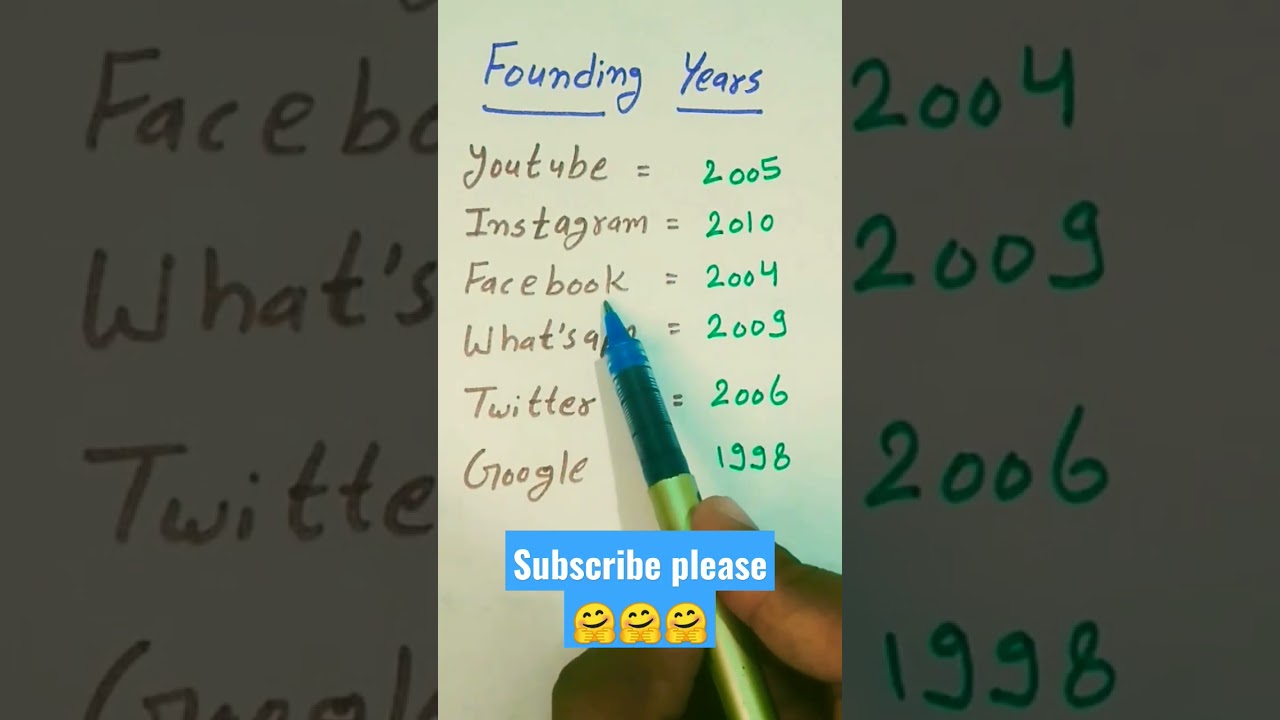 Founding Years
Youtube = 2005
Instagram = 2010
Facebook = 2004
What's app = 2009
Twitter = 2006
Google 1998
Subscribe please
🤗🤗🤗